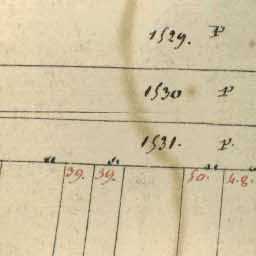 1529. P
1530 P
1531. P.
39. 39. 50. 48.